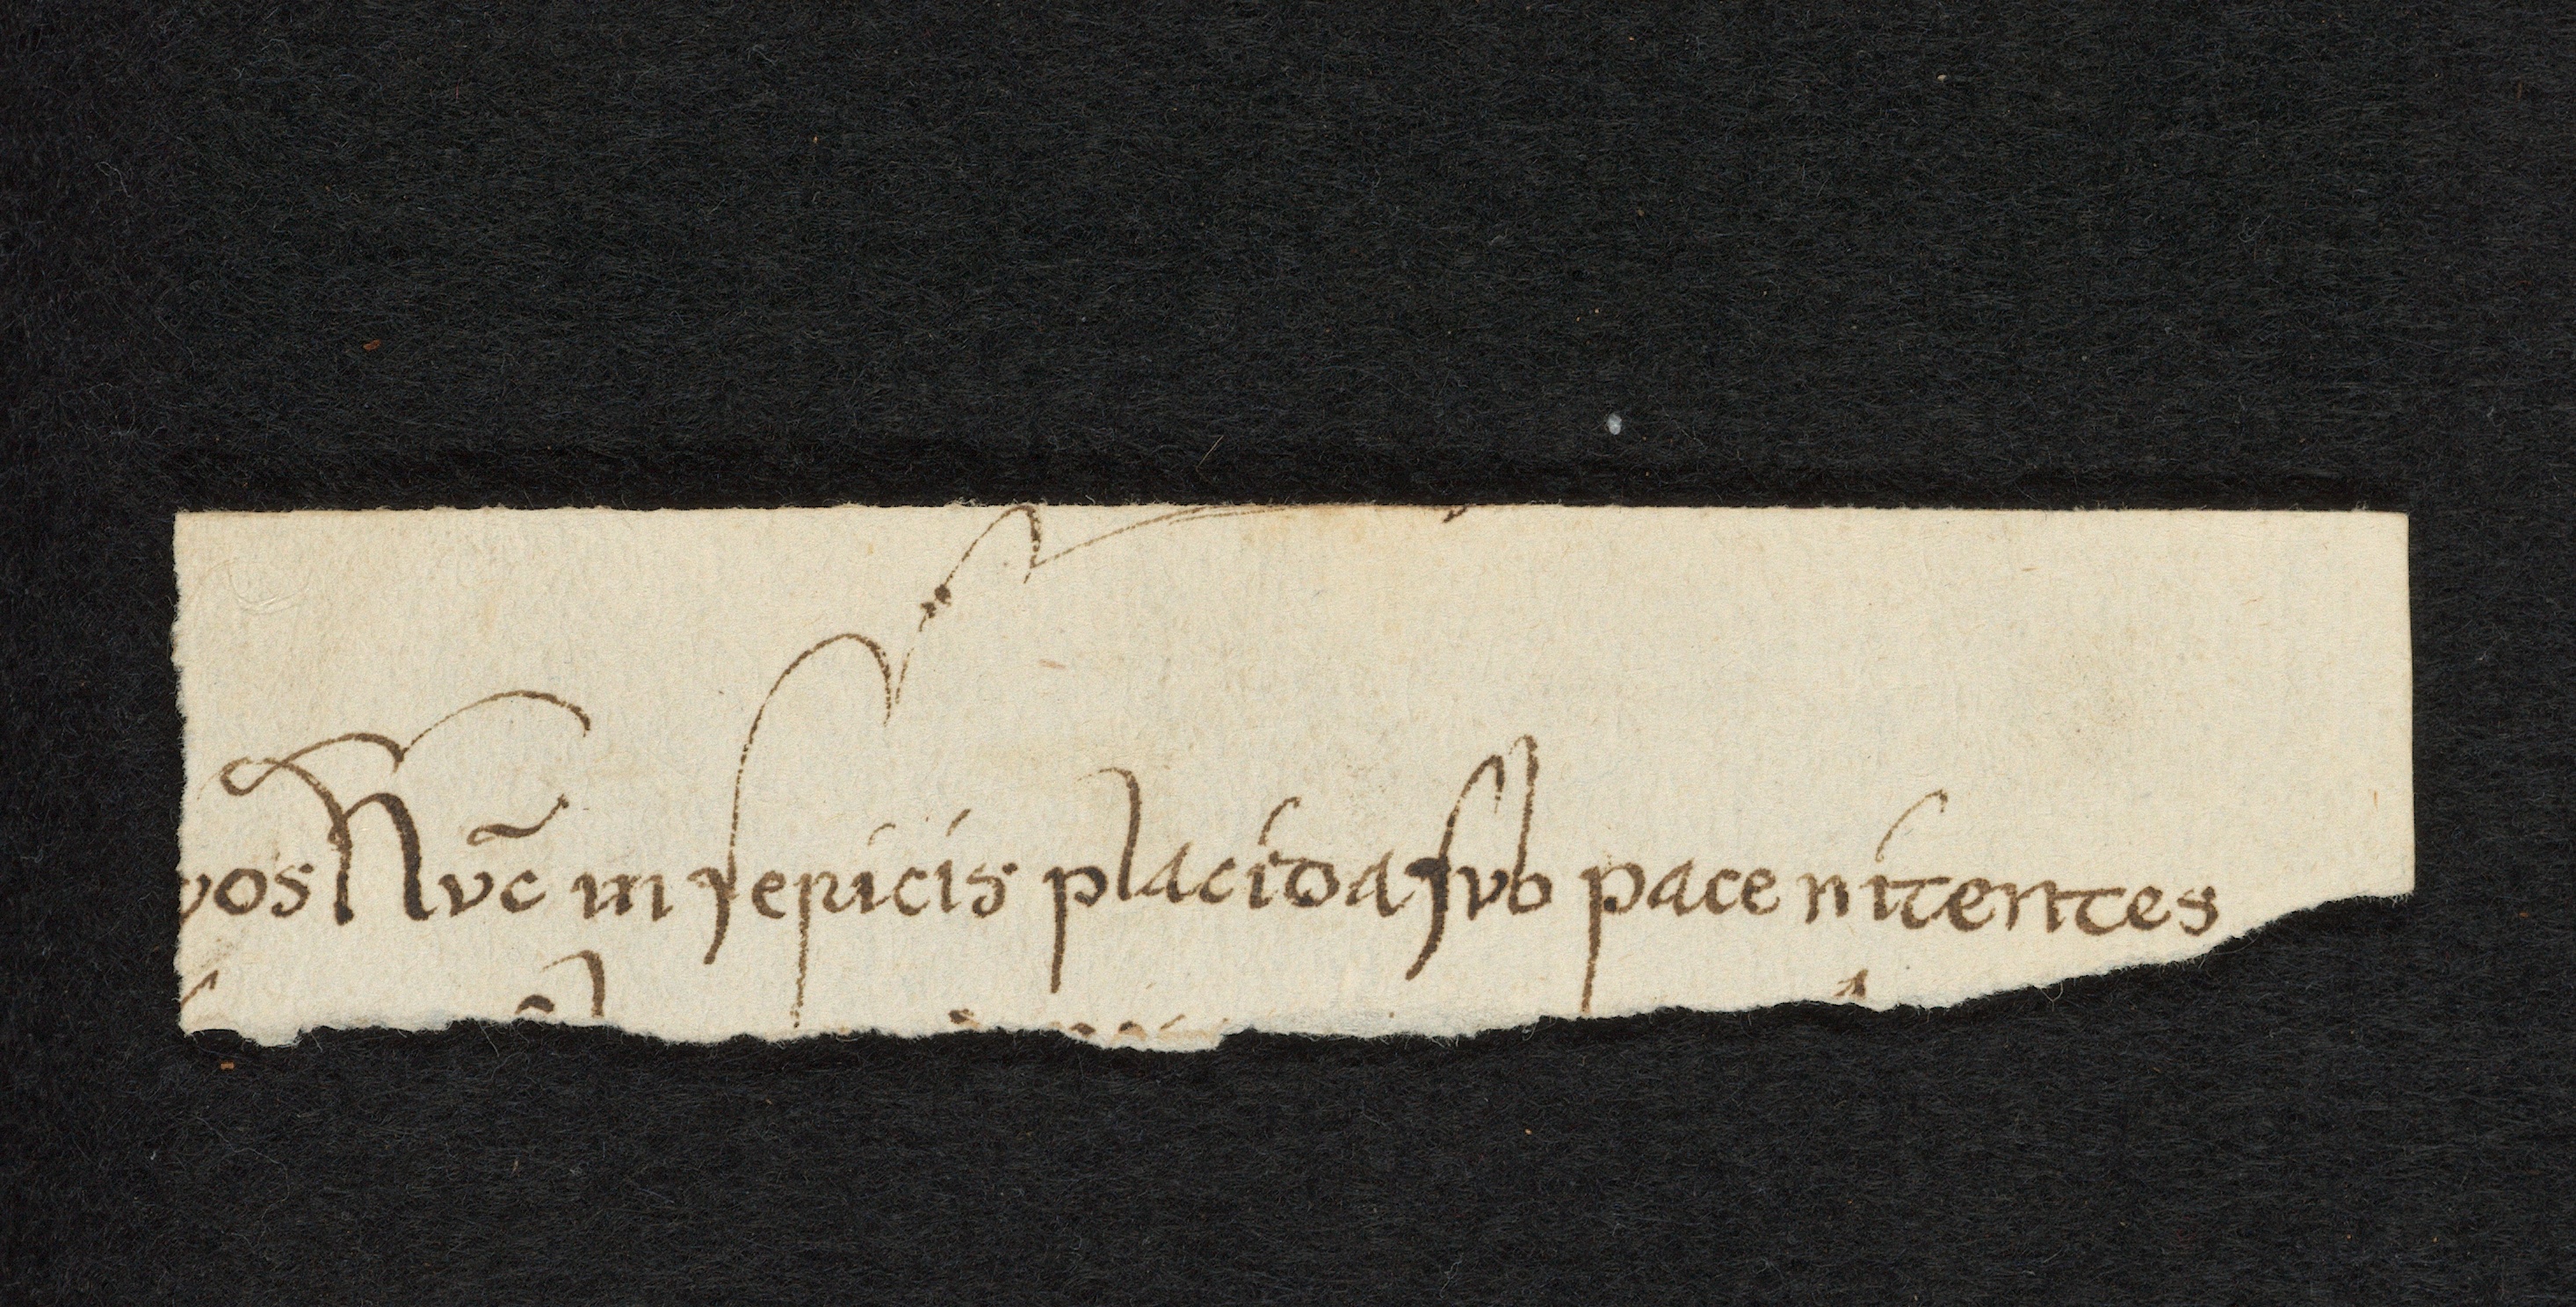 vos Nvc̄ in sericis placida svb pace nitentes